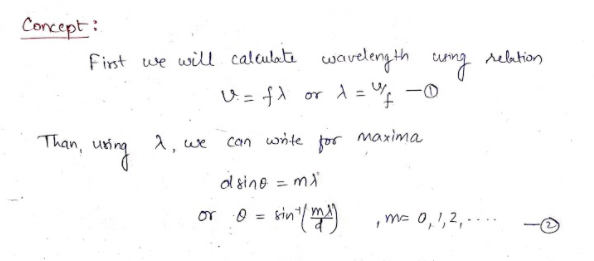 Concept:
First we will calculate wavelength using relation
v = fλ or λ = v/f —①
Than, using λ, we can write for maxima
d sinθ = mλ
or θ = sin⁻¹(mλ/d) , m= 0,1,2,.... —②